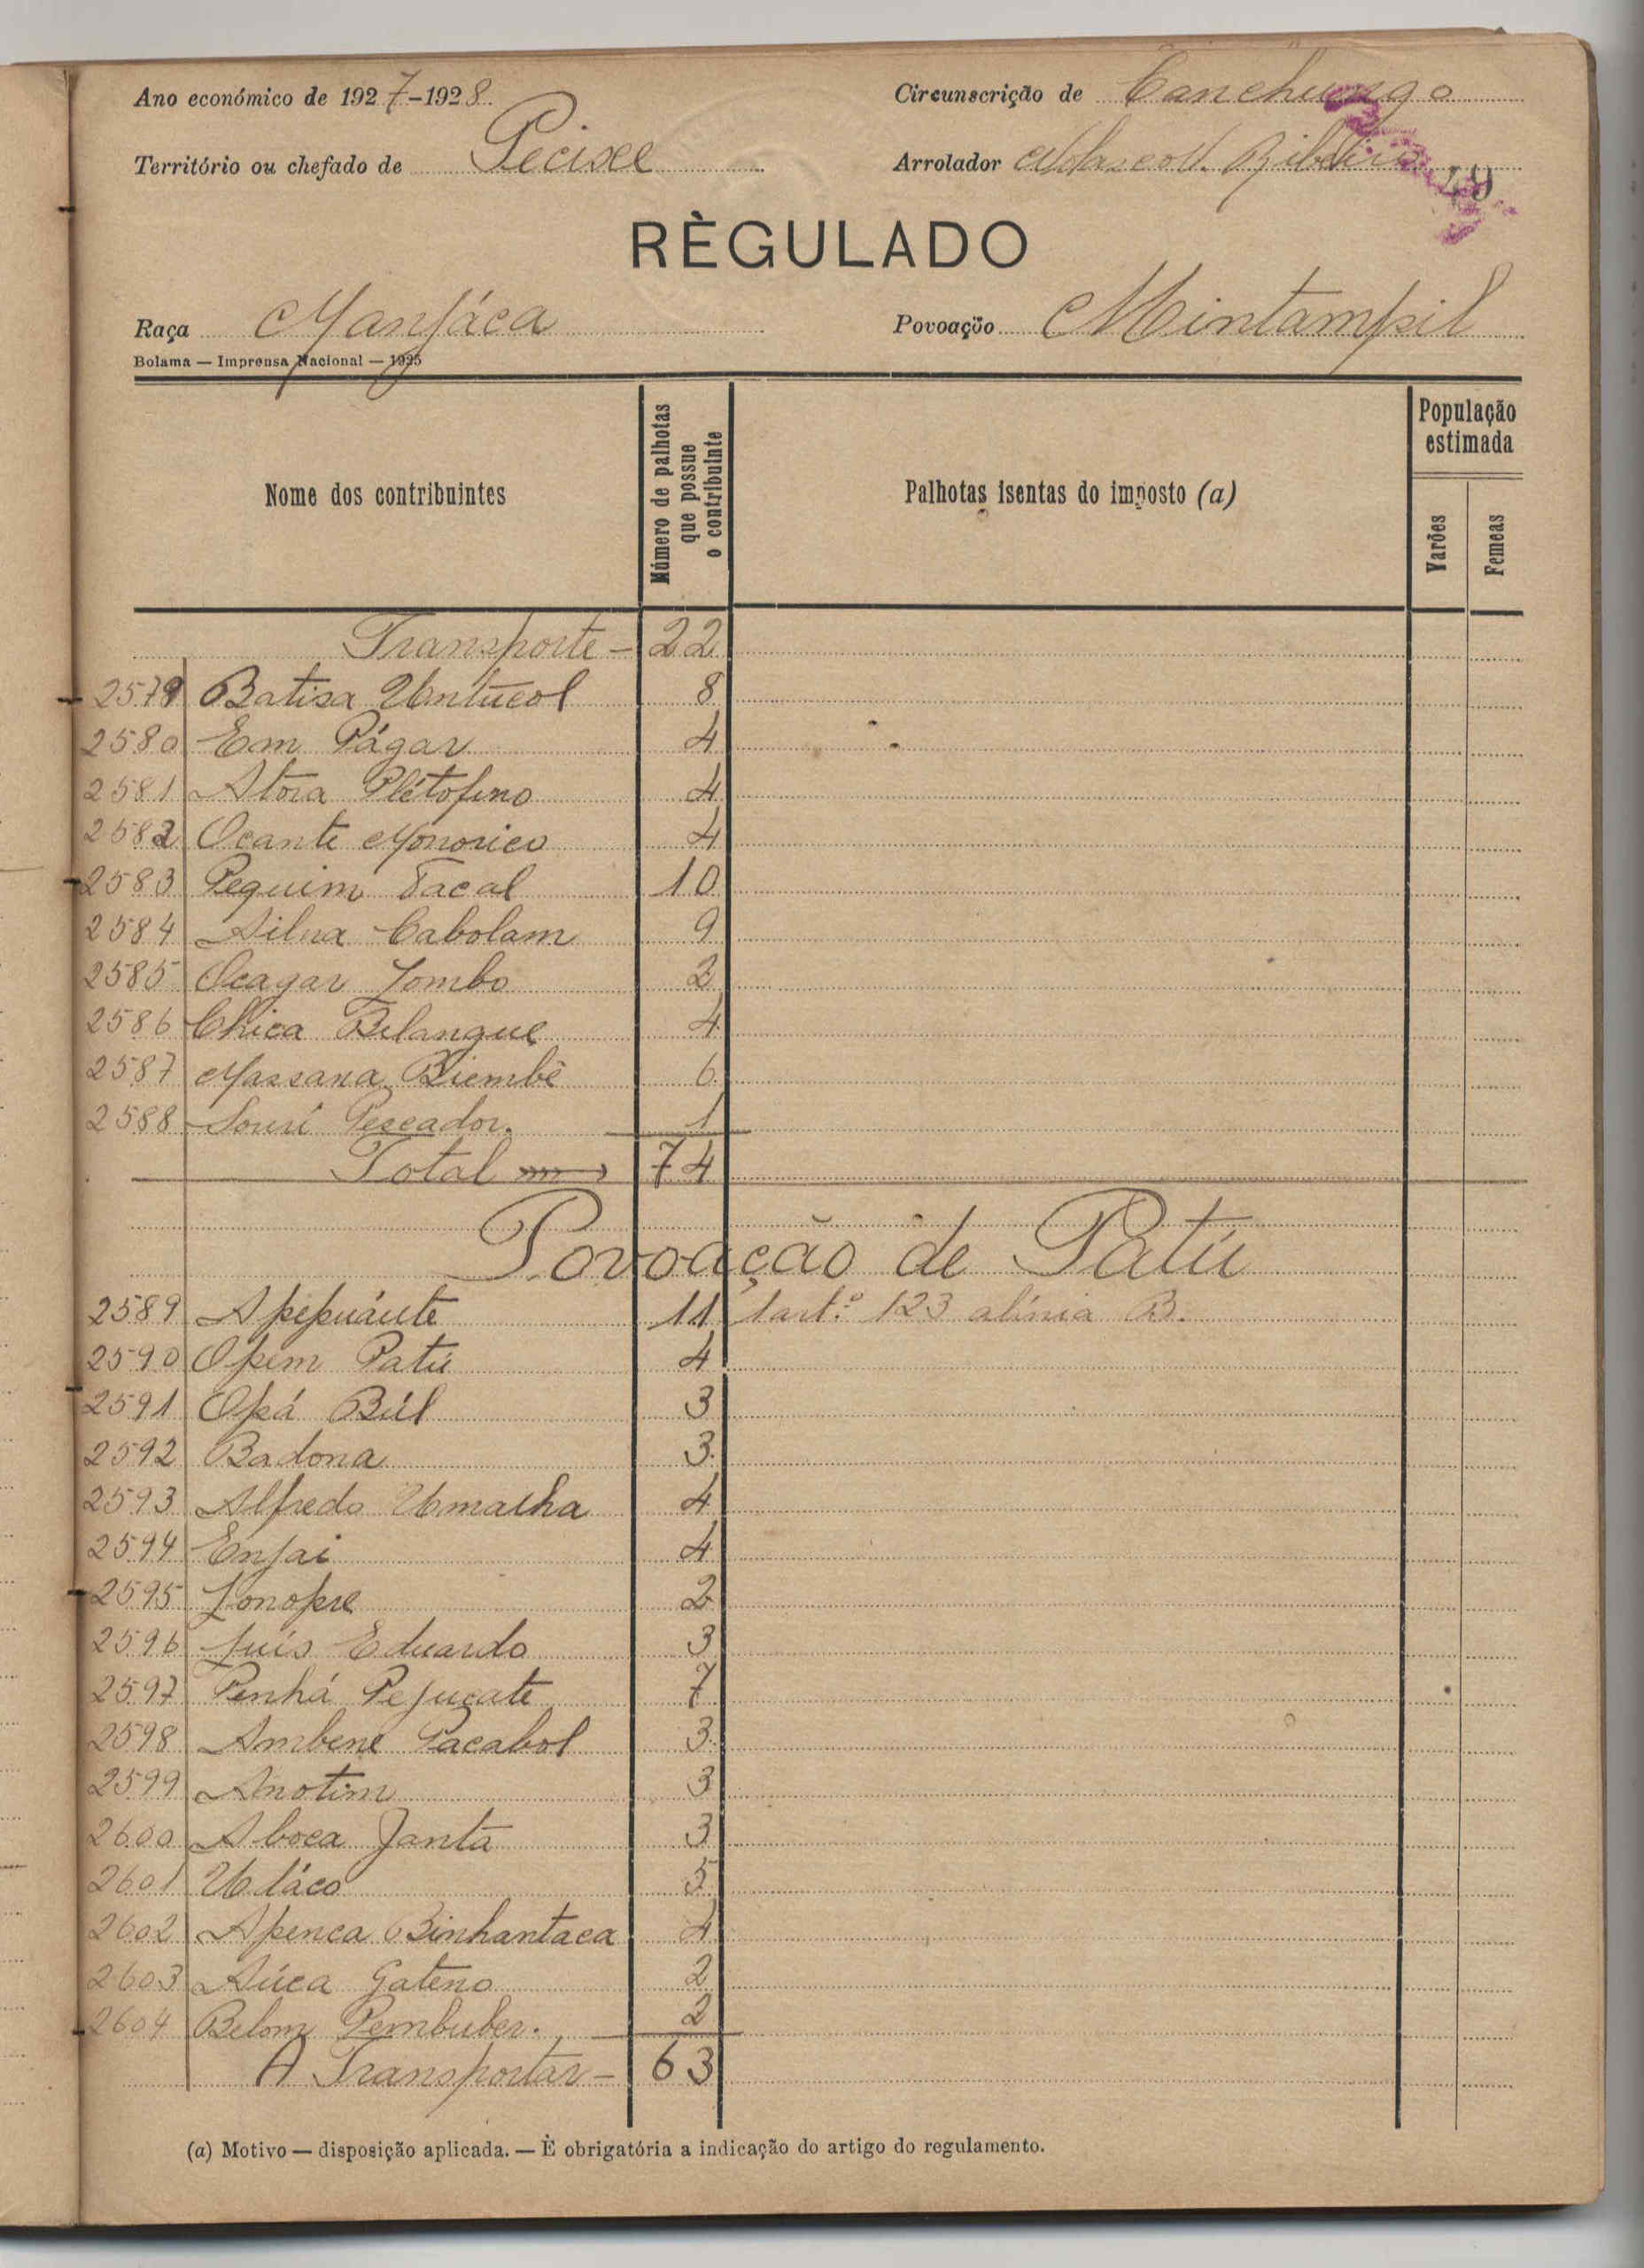 Ano económico de 1927-1928. Circunscrição de Canchungo
Território ou chefado de Pecixe Arrolador Ribeiro
49
RÈGULADO
Raça Manjáca Povoação Mintampil
Bolama — Imprensa Nacional — 1925
Nome dos contribuintes Número de palhotas que possue o contribuinte Palhotas isentas do imposto (a) População estimada Varões Femeas
Transporte — 22
2579 Batisa Untucol 8
2580 Em Págar 4
2581 Atora Plétofino 4
2582 Ocante Monorico 4
2583 Pequim Tacal 10
2584 Silva Cabolam 9
2585 Ocagar Jombo 2
2586 Chica Bilangue 4
2587 Massana Biembê 6
2588 Pescador. 1
Total 74
Povoação de Patú
2589 Apepuáute 11 1 art.º 123 alinia B.
2590 Opem Patú 4
2591 Opá Búl 3
2592 Badona 3
2593 Alfredo Umalha 4
2594 Enjai 4
2595 Jonopre 2
2596 Luís Eduardo 3
2597 Penhá Pejucate 7
2598 Ambene Pacabol 3
2599 Anotim 3
2600 Aboca Janta 3
2601 Uláco 5
2602 Apenca Binhantaca 4
2603 Súca Gateno 2
2604 Belom Pembuber. 2
A Transportar — 63
(a) Motivo — disposição aplicada. — È obrigatória a indicação do artigo do regulamento.